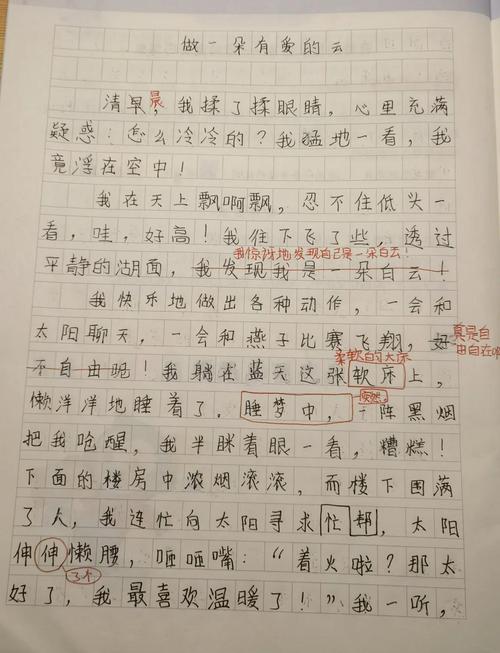 做一朵有爱的云
清早晨，我揉了揉眼睛，心里充满
疑惑：怎么冷冷的？我猛地一看，我
竟浮在空中！
我在天上飘啊飘，忍不住低头一
看，哇，好高！我往下飞了些，透过
我惊讶地发现自己是一朵白云！
平静的湖面，我发现我是一朵白云！
我快乐地做出各种动作，一会和
太阳聊天，一会和燕子比赛飞翔，好
真是自
由自在啊
柔软的大床
不自由呢！我躺在蓝天这张软床上，
懒洋洋地睡着了。睡梦中，一阵黑烟
突然
把我呛醒，我半眯着眼一看，糟糕！
下面的楼房中浓烟滚滚，而楼下围满
了人，我连忙向太阳寻求忙帮，太阳
伸伸懒腰，咂咂嘴：“着火啦？那太
了个
好了，我最喜欢温暖了！”我一听，